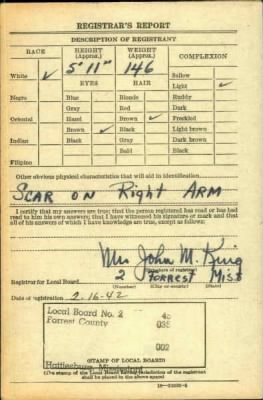 REGISTRAR'S REPORT
DESCRIPTION OF REGISTRANT
RACE HEIGHT (Approx.) WEIGHT (Approx.) COMPLEXION
White ✓ 5' 11" 146 Sallow
EYES HAIR Light ✓
Negro Blue Blonde Ruddy
Gray Red Dark
Oriental Hazel Brown ✓ Freckled
Brown ✓ Black Light brown
Indian Black Gray Dark brown
Bald Black
Filipino
Other obvious physical characteristics that will aid in identification
SCAR ON Right ARM
I certify that my answers are true; that the person registered has read or has had
read to him his own answers; that I have witnessed his signature or mark and that
all of his answers of which I have knowledge are true, except as follows:
Mrs John M. King
(Signature of registrar)
Registrar for Local Board 2 FORREST MISS
(Number) (City or county) (State)
Date of registration 2-16-42
Local Board No. 2 45
Forrest County 035
002
Hattiesburg, Mississippi
(STAMP OF LOCAL BOARD)
(The stamp of the Local Board having jurisdiction of the registrant
shall be placed in the above space)